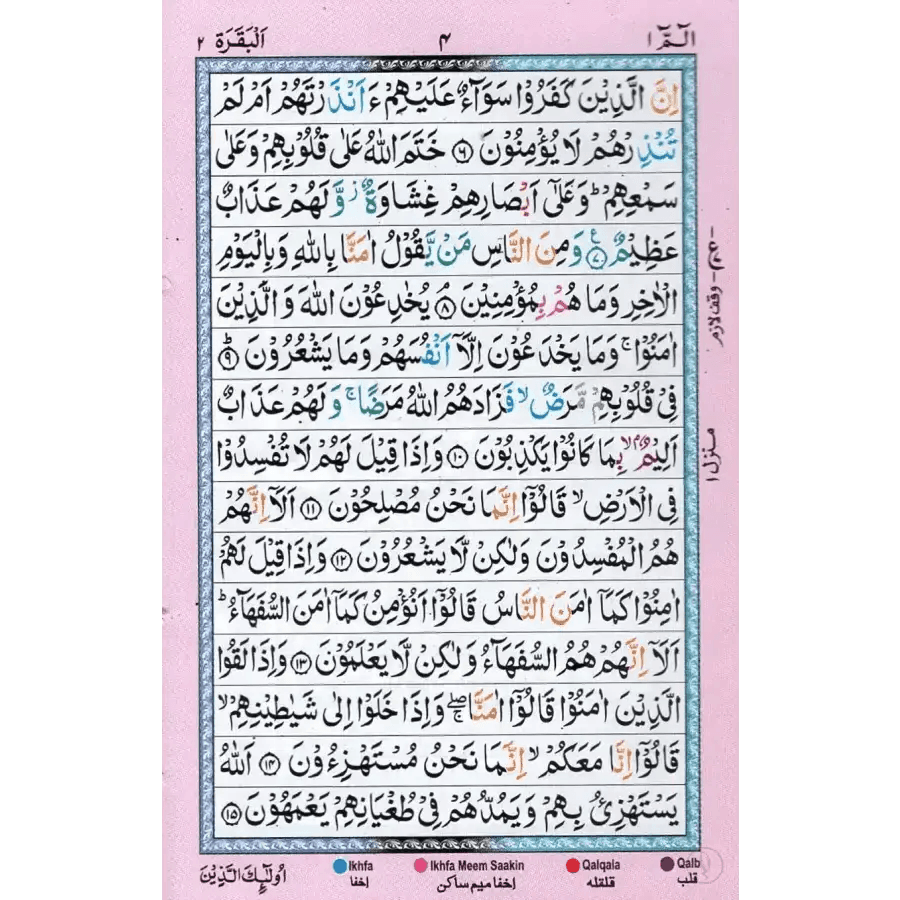 الٓمّٓ ١ ۴ اَلْبَقَرَة ٢
اِنَّ الَّذِیْنَ کَفَرُوْا سَوَآءٌ عَلَیْهِمْ ءَاَنْذَرْتَهُمْ اَمْ لَمْ
تُنْذِرْهُمْ لَا یُؤْمِنُوْنَ ۶ خَتَمَ اللّٰهُ عَلٰی قُلُوْبِهِمْ وَعَلٰی
سَمْعِهِمْ ؕ وَعَلٰۤی اَبْصَارِهِمْ غِشَاوَةٌ ز وَّلَهُمْ عَذَابٌ
عَظِیْمٌ ۷ ع وَمِنَ النَّاسِ مَنْ یَّقُوْلُ اٰمَنَّا بِاللّٰهِ وَبِالْیَوْمِ
الْاٰخِرِ وَمَا هُمْ بِمُؤْمِنِیْنَ ۘ ۸ یُخٰدِعُوْنَ اللّٰهَ وَالَّذِیْنَ
اٰمَنُوْا ۚ وَمَا یَخْدَعُوْنَ اِلَّاۤ اَنْفُسَهُمْ وَمَا یَشْعُرُوْنَ ؕ ۹
فِیْ قُلُوْبِهِمْ مَّرَضٌ ۙ فَزَادَهُمُ اللّٰهُ مَرَضًا ۚ وَلَهُمْ عَذَابٌ
اَلِیْمٌۢ ۙ بِمَا کَانُوْا یَکْذِبُوْنَ ۱۰ وَاِذَا قِیْلَ لَهُمْ لَا تُفْسِدُوْا
فِی الْاَرْضِ ۙ قَالُوْۤا اِنَّمَا نَحْنُ مُصْلِحُوْنَ ۱۱ اَلَاۤ اِنَّهُمْ
هُمُ الْمُفْسِدُوْنَ وَلٰکِنْ لَّا یَشْعُرُوْنَ ۱۲ وَاِذَا قِیْلَ لَهُمْ
اٰمِنُوْا کَمَاۤ اٰمَنَ النَّاسُ قَالُوْۤا اَنُؤْمِنُ کَمَاۤ اٰمَنَ السُّفَهَآءُ ؕ
اَلَاۤ اِنَّهُمْ هُمُ السُّفَهَآءُ وَلٰکِنْ لَّا یَعْلَمُوْنَ ۱۳ وَاِذَا لَقُوا
الَّذِیْنَ اٰمَنُوْا قَالُوْۤا اٰمَنَّا ۚۖ وَاِذَا خَلَوْا اِلٰی شَیٰطِیْنِهِمْ ۙ
قَالُوْۤا اِنَّا مَعَکُمْ ۙ اِنَّمَا نَحْنُ مُسْتَهْزِءُوْنَ ۱۴ اَللّٰهُ
یَسْتَهْزِئُ بِهِمْ وَیَمُدُّهُمْ فِیْ طُغْیَانِهِمْ یَعْمَهُوْنَ ۱۵
وقف لازم
منزل ١
اُولٰٓئِكَ الَّذِیْنَ
Ikhfa
إخفا
Ikhfa Meem Saakin
إخفا میم ساکن
Qalqala
قلقله
Qalb
قلب